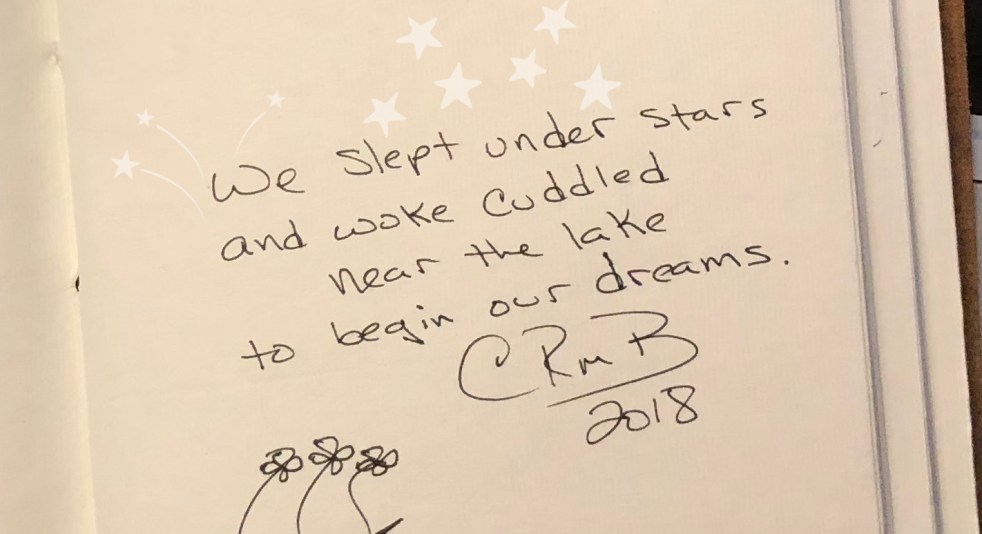 We slept under stars
and woke cuddled
near the lake
to begin our dreams.
CRmB
2018